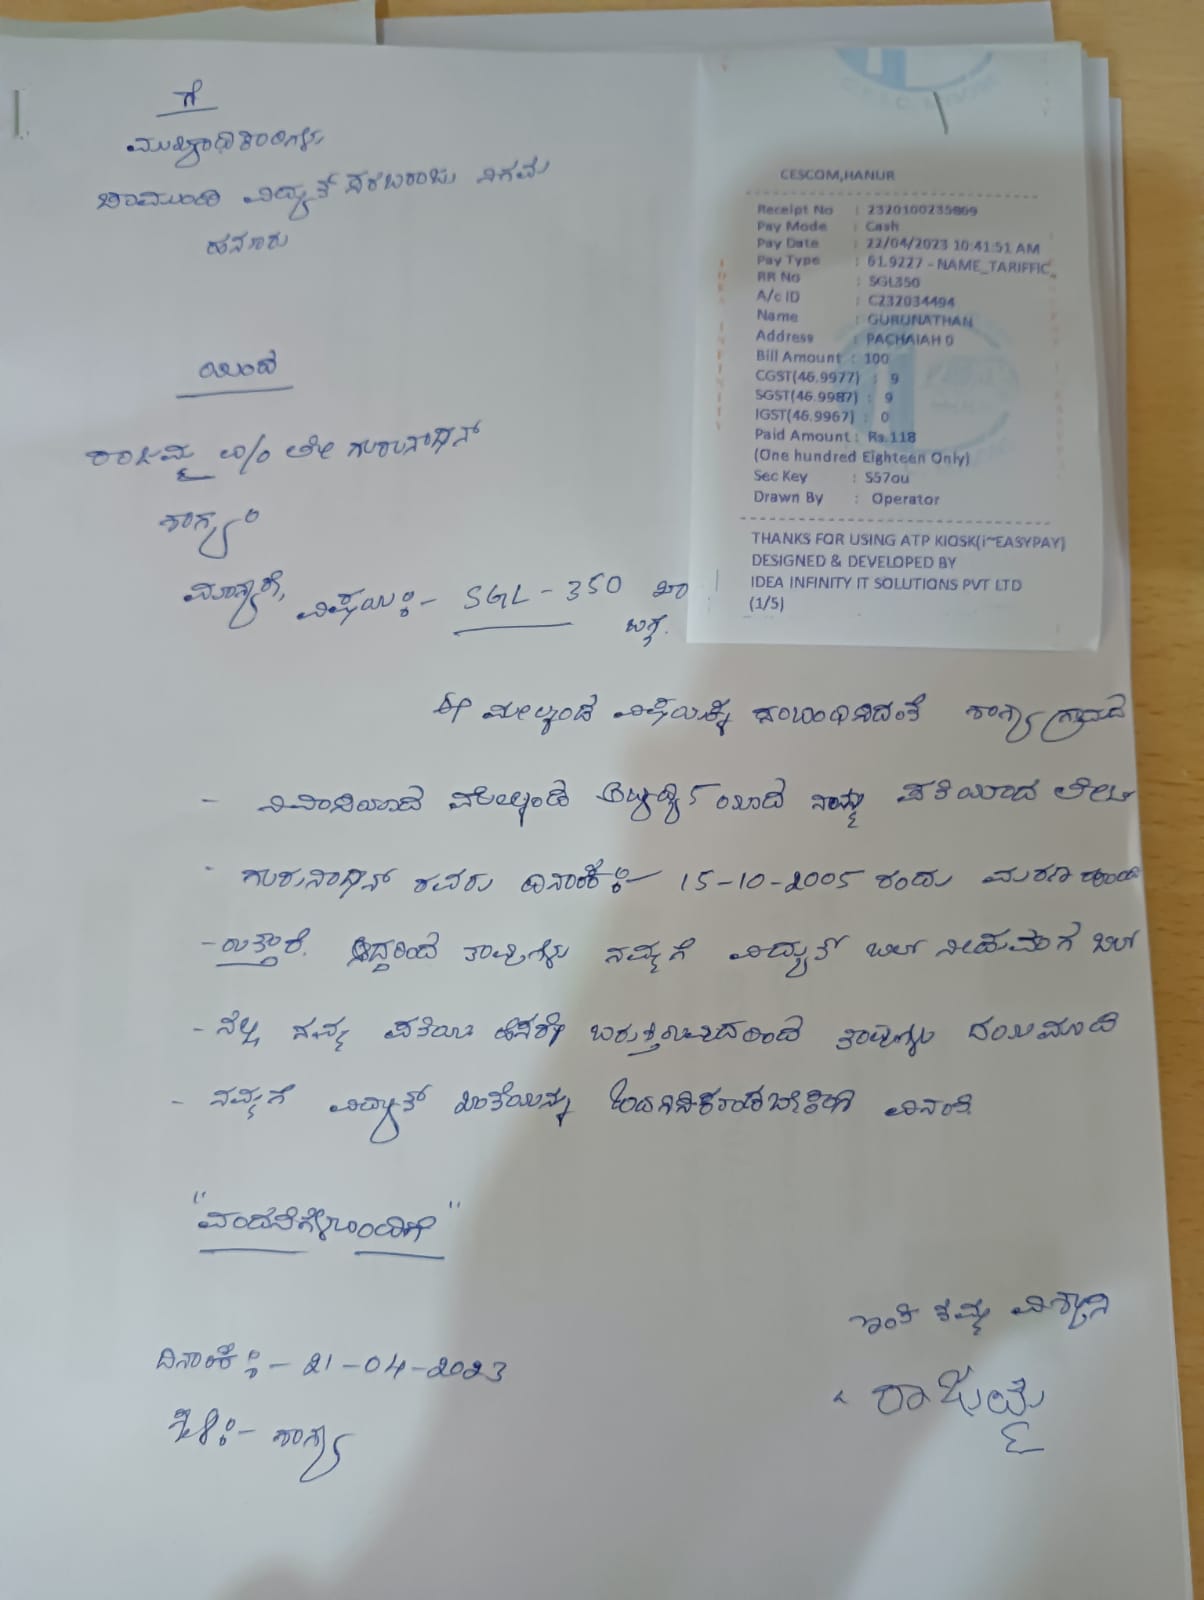 ಗೆ
ಮುಖ್ಯಾಧಿಕಾರಿಗಳು
ಚಾಮುಂಡಿ ವಿದ್ಯುತ್ ಸರಬರಾಜು ನಿಗಮ
ಹನೂರು
ಯಿಂದ
ರಾಜಮ್ಮ W/o ಲೇ ಗುರುನಾಥನ್
ಶಾಗ್ಯಂ
ಮಾನ್ಯರೆ,
ವಿಷಯ:- SGL-350 ಖಾ
ಬಗ್ಗೆ.
CESCOM,HANUR
Receipt No : 2320100235869
Pay Mode : Cash
Pay Date : 22/04/2023 10:41:51 AM
Pay Type : 61.9227 - NAME_TARIFFIC_
RR No : SGL350
A/c ID : C232034494
Name : GURUNATHAN
Address : PACHAIAH 0
Bill Amount : 100
CGST(46.9977) : 9
SGST(46.9987) : 9
IGST(46.9967) : 0
Paid Amount : Rs.118
(One hundred Eighteen Only)
Sec Key : S57ou
Drawn By : Operator
THANKS FOR USING ATP KIOSK(i~EASYPAY)
DESIGNED & DEVELOPED BY
IDEA INFINITY IT SOLUTIONS PVT LTD
(1/5)
ಈ ಮೇಲ್ಕಂಡ ವಿಷಯಕ್ಕೆ ಸಂಬಂಧಿಸಿದಂತೆ ಶಾಗ್ಯ ಗ್ರಾಮದ
- ನಿವಾಸಿಯಾದ ಮೇಲ್ಕಂಡ ನಮ್ಮ ಪತಿಯಾದ ಲೇಟ್
ಗುರುನಾಥನ್ ರವರು ದಿನಾಂಕ:- 15-10-2005 ರಂದು ಮರಣ ಹೊಂದಿ
- ರುತ್ತಾರೆ. ಆದ್ದರಿಂದ ತಾವುಗಳು ನಮ್ಮಗೆ ವಿದ್ಯುತ್ ಬಿಲ್ ನೀಡುವಾಗ ಬಿಲ್
- ನಲ್ಲಿ ನಮ್ಮ ಪತಿಯ ಹೆಸರೇ ಬರುತ್ತಿರುವುದರಿಂದ ತಾವುಗಳು ದಯಮಾಡಿ
- ನಮ್ಮಗೆ ವಿದ್ಯುತ್ ಖಾತೆಯನ್ನು ವಿನಂತಿ.
"ವಂದನೆಗಳೊಂದಿಗೆ"
ಇಂತಿ ತಮ್ಮ ವಿಶ್ವಾಸಿ
ರಾಜಮ್ಮ
ದಿನಾಂಕ:- 21-04-2023
ಸ್ಥಳ:- ಶಾಗ್ಯ